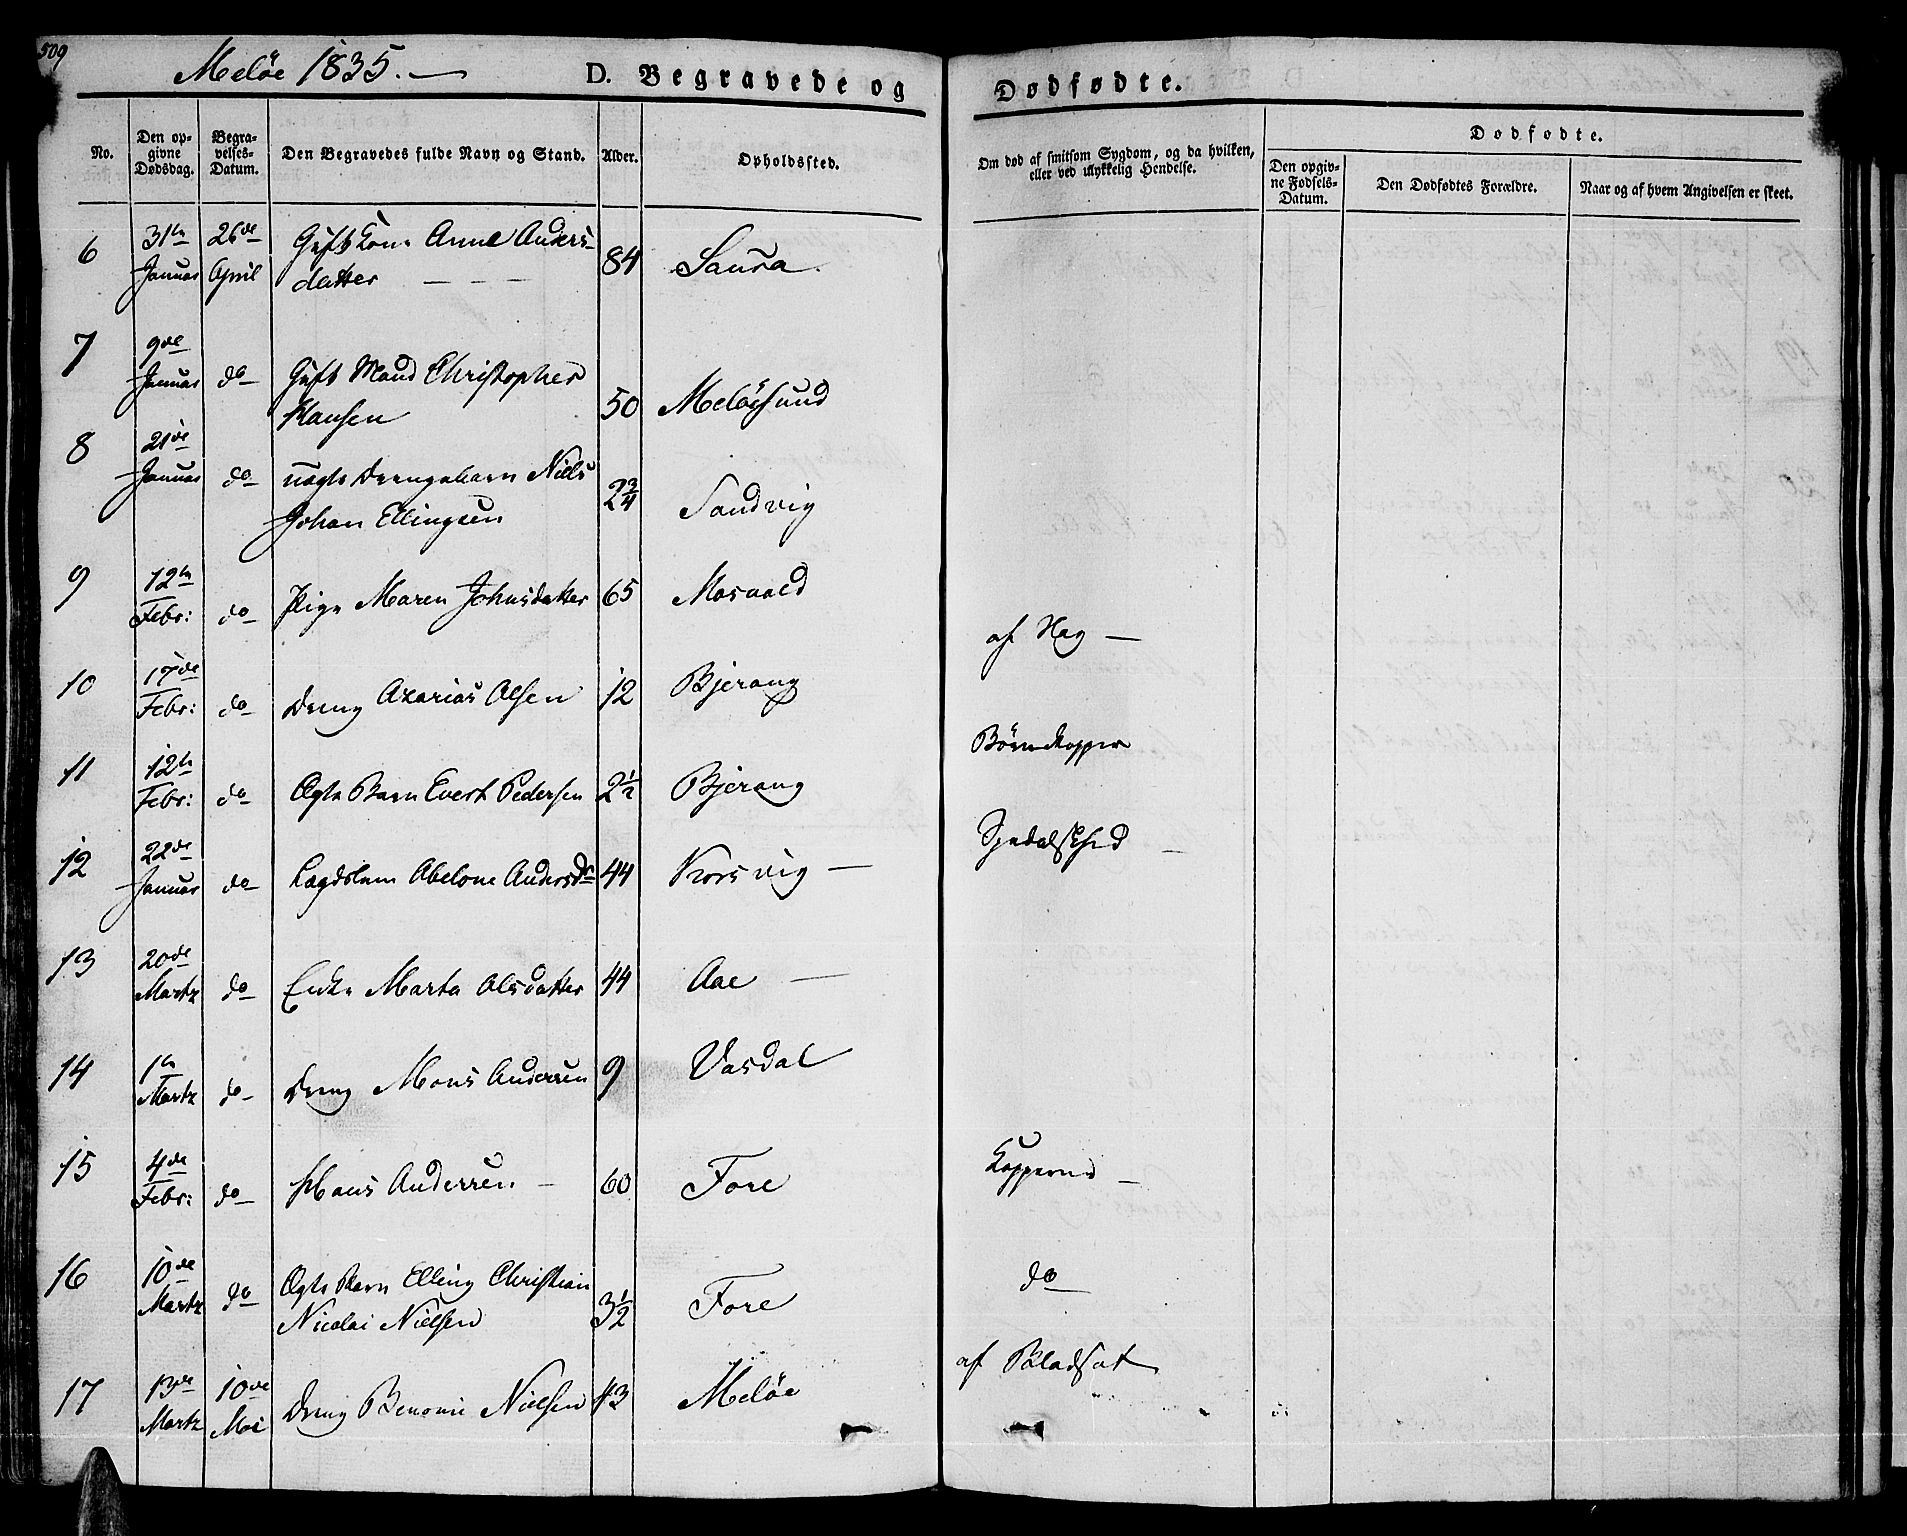 509
Meløe 1835.
D. Begravede og
Dødfødte.
No.
Den op-
givne
Dødsdag.
Begra-
velses-
Datum.
Den Begravedes fulde Navn og Stand.
Alder.
Opholdssted.
Om død af smitsom Sygdom, og da hvilken,
eller ved ulykkelig Hendelse.
Dødfødte.
Den opgiv-
ne Fødsels-
Datum.
Den Dødfødtes Forældre.
Naar og af hvem Angivelsen er skeet.
6 31te Januar 26de April Gift Kone Anne Anders-
datter 84 Saura.
7 9de Januar do Gift Mand Christopher
Hansen 50 Meløesund
8 21de Januar do uægte Drengebarn Niels
Johan Ellingsen 2 3/4 Sandvig
9 12te Febr: do Pige Maren Johnsdatter 65 Mosvold
10 17de Febr: do Dreng Azarias Olsen 12 Bjerang af Hag
11 12te Febr: do Ægte Barn Evert Pedersen 2 1/2 Bjerang Børnekopper
12 22de Januar do Lægdslem Abelone Andersdr 44 Korsvig Spedalskhed
13 20de Martz do Enke Marta Olsdatter 44 Aae
14 1te Martz do Dreng Mons Andersen 9 Vasdal
15 4de Febr: do Hans Andersen 60 Fore Kopperne
16 10de Martz do Ægte Barn Elling Christian
Nicolai Nielsen 3 1/2 Fore do
17 13de Martz 10de Mai Dreng Benonie Nielsen 13 Meløe af Bladsot